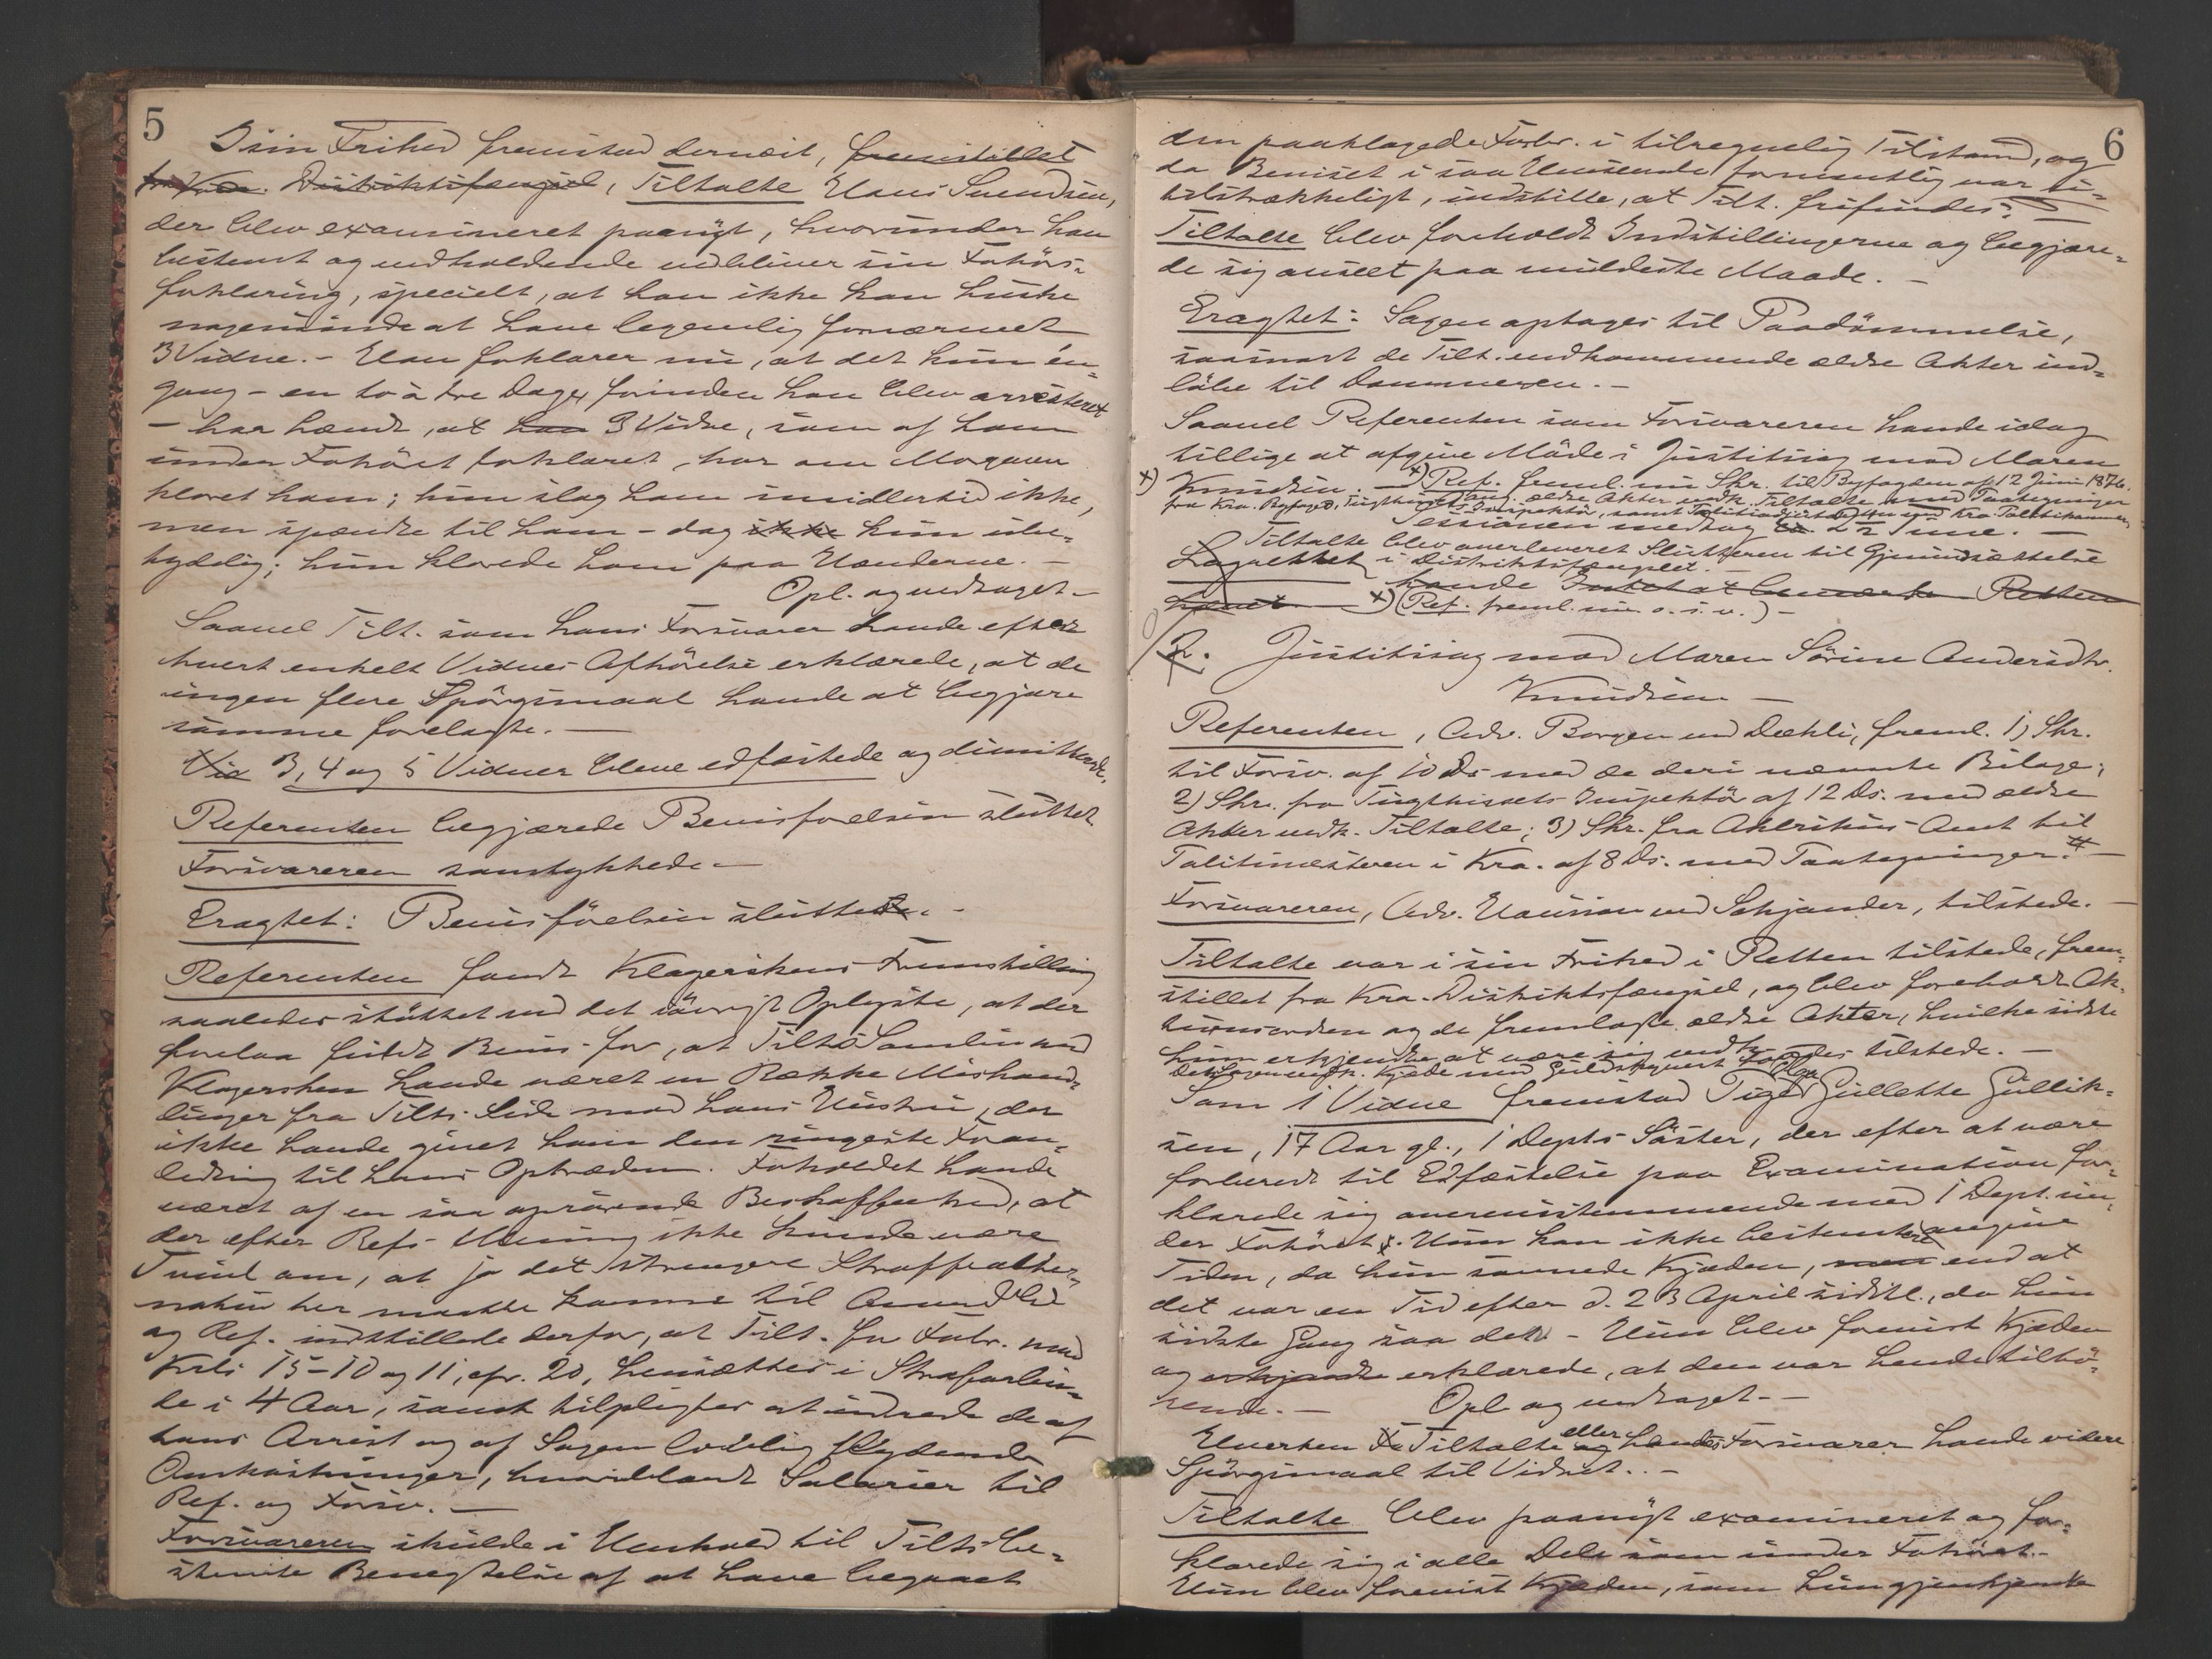 5
I sin Frihed fremstod dernæst, fremstillet
fra Kra. Distriktsfængsel, Tiltalte Hans Svendsen,
der blev examineret paanyt, hvorunder han
bestemt og vedholdende vedbliver sin Forhørs-
forklaring, specielt, at han ikke kan huske
nogensinde at have legemlig fornærmet
3 Vidne. - Han forklarer nu, at det kun én-
gang - en to à tre Dage, forinden han blev arresteret
- har hændt, at han 3 Vidne, som af ham
under Forhøret forklaret, har om Morgenen
kloret ham; hun slog ham imidlertid ikke,
men spændte til ham - dog ikke kun ube-
tydelig; hun klorede ham paa Hænderne. -
Opl. og vedtaget -
Saavel Tilt. som hans Forsvarer havde efter
hvert enkelt Vidnes Afhørelse erklærede, at de
ingen flere Spørgsmaal havde at begjære
samme forelagte. -
Vid 3, 4 og 5 Vidner bleve edfæstede og dimitterede.
Referenten begjærede Bevisførelsen sluttet
Forsvareren samtykkede -
Eragtet: Bevisførelsen sluttede. -
Referenten fandt Klagerskens Fremstilling
saaledes støttet ved det øvrigt Oplyste, at der
forelaa fuldt Bevis for, at Tilts Samliv med
Klagersken havde været en Række Mishand-
linger fra Tilts. Side mod hans Hustru, der
ikke havde givet ham den ringeste Foran-
ledning til hans Optræden. Forholdet havde
været af en saa oprørende Beskaffenhed, at
der efter Refs. Mening ikke kunde være
Tvivl om, at jo det strengere Straffealter-
nativ her maatte komme til Anvendelse
og Ref. indstillede derfor, at Tilt. for Forbr. mod
Krls 15-10 og 11, cfr. 20, hensættes i Strafarbei-
de i 4 Aar, samt tilpligtes at udrede de af
hans Arrest og af Sagen lovlig flydende
Omkostninger, hvoriblandt Salarier til
Ref. og Forsv. -
Forsvareren skulde i Henhold til Tilts be-
stemte Benegtelse af at have begaaet
6
den paaklagede Forbr. i tilregnelig Tilstand, og
da Beviset i saa Henseende formentlig var u-
tilstrækkeligt, indstille, at Tilt. frifindes. -
Tiltalte blev foreholdt Indstillingerne og begjære-
de sig anseet paa mildeste Maade. -
Eragtet: Sagen optages til Paadømmelse,
saasnart de Tilt. vedkommende ældre Akter ind-
løbe til Dommeren. -
Saavel Referenten som Forsvareren havde idag
tillige at afgive Møde i Justitssag mod Maren
x) Knudsen. - x) Ref. freml. nu Skr. til Byfogden af 12 Juni 1876.
fra Kra. Byfoged, Tugthusets Inspektør, samt Politiadjutant
ang. ældre Akter vedk. Tiltalte med Paategninger
Sessionen medtog 2½ Time. -
Tiltalte blev overleveret Slutteren til Gjenindsættelse
i Distriktsfængslet. -
Lagrettet havde Intet at bemærke Retten
hævet x) (Ref. freml. nu o. s. v.) -
2. Justitssag mod Maren Sørine Andersdtr.
Knudsen -
Referenten, Adv. Borgen ved Dæhli, freml. 1) Skr.
til Forsv. af 10 Ds. med de deri nævnte Bilage;
2) Skr. fra Tugthusets Inspektør af 12 Ds. med ældre
Akter vedk. Tiltalte; 3) Skr. fra Akershus Amt til
Politimesteren i Kra. af 8 Ds. med Paategninger. # -
Forsvareren, Adv. Hansson ved Schjander, tilstede. -
Tiltalte var i sin Frihed i Retten tilstede, frem-
stillet fra Kra. Distriktsfængsel, og blev foreholdt Ak-
tionsordren og de fremlagte ældre Akter, hvilke sidste
hun erkjendte at være sig vedk. tilstede. -
Som 1 Vidne fremstod Pige Olga Gullette Gullik-
sen, 17 Aar gl., 1 Depts Søster, der efter at være
forberedt til Edfæstelse paa Examination for-
klarede sig overensstemmende med 1 Dept. un-
der Forhøret. Hun kan ikke bestemtere angive
Tiden, da hun savnede Kjæden, men end at
det var en Tid efter d. 23 April sidstl., da hun
sidste Gang saa den - Hun blev forevist Kjæden
og erkjendte erklærede, at den var hende tilhø-
rende. - Opl. og vedtaget. -
Hverken Tiltalte eller hendes Forsvarer havde videre
Spørgsmaal til Vidnet. -
Tiltalte blev paanyt examineret og for-
klarede sig i alle Dele som under Forhøret. -
Hun blev forevist Kjæden, som hun gjenkjendte